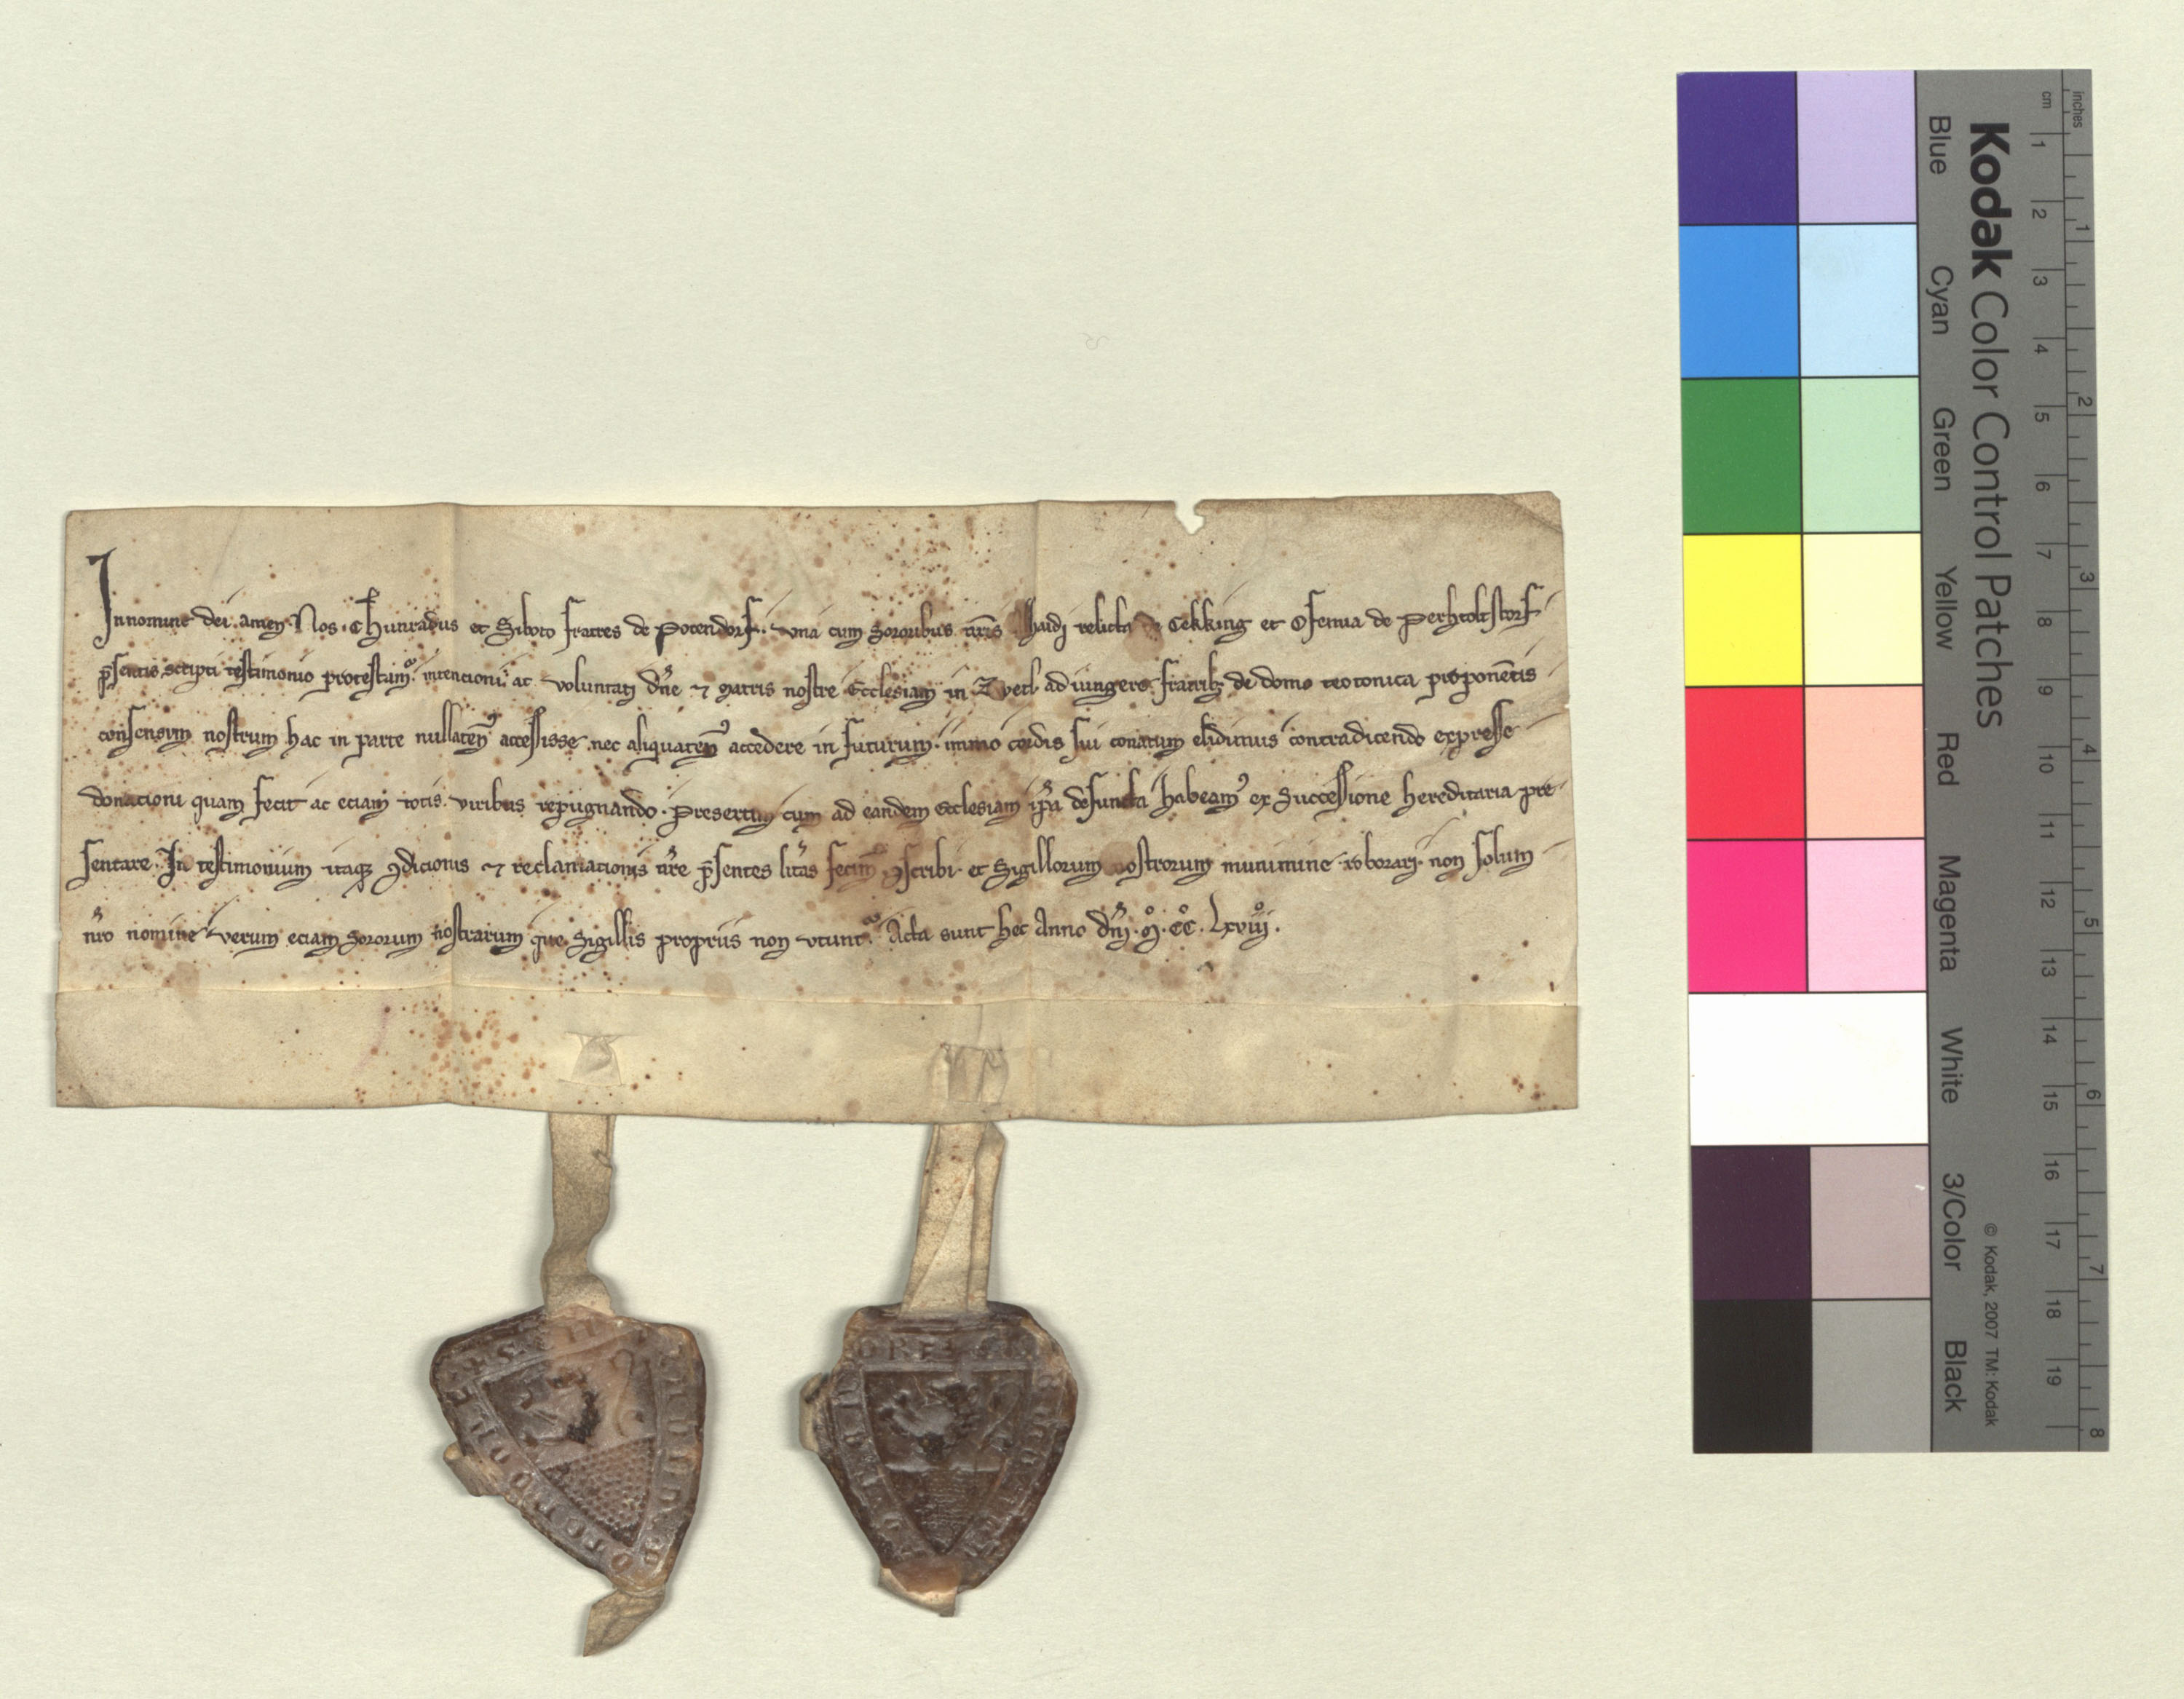 In nomine dei. amen. Nos. Chunradus et Siboto fratres de Potendorf. vna cum sororibus nr̄is haidi relicta de Cekking et Ofemia de Perhtoltstorf
p̄sentis scripti testimonio protestamꝰ. intencioni ac voluntati dn̄e ⁊ matris nostre Ecclesiam in Zvetl adiungere fratribꝫ de domo teotonica proponētis
consensum nostrum hac in parte nullatenꝰ accessisse nec aliquatenꝰ accedere in futurum. immo cordis sui conatum elidimus contradicendo expresse
donacioni quam fecit ac eciam totis viribus repugnando. presertim cum ad eandem Ecclesiam ip̄a defuncta habeamꝰ ex successione hereditaria pre
sentare. In testimonium itaqꝫ ꝯdicionis ⁊ reclamacionis nr̄e p̄sentes litās fecimꝰ ꝯscribi. et Sigillorum nostrorum munimine roborari. non solum
nr̄o nomine verum eciam sororum nostrarum que sigillis propriis non vtunt᷑. Acta sunt hec Anno dn̄i. M̊. CC̊. Lxviii̊.
Kodak Color Control Patches
Blue Cyan Green Yellow Red Magenta White 3/Color Black
© Kodak, 2007 TM: Kodak
inches 1 2 3 4 5 6 7 8
cm 1 2 3 4 5 6 7 8 9 10 11 12 13 14 15 16 17 18 19